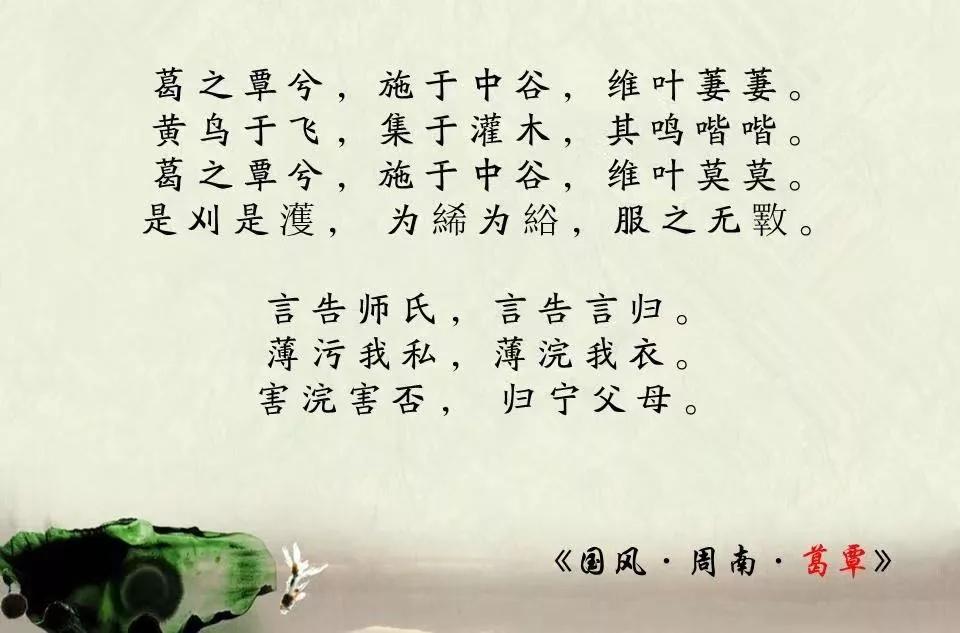 葛之覃兮，施于中谷，维叶萋萋。
黄鸟于飞，集于灌木，其鸣喈喈。
葛之覃兮，施于中谷，维叶莫莫。
是刈是濩， 为絺为綌，服之无斁。
言告师氏，言告言归。
薄污我私，薄浣我衣。
害浣害否， 归宁父母。
《国风·周南·葛覃》